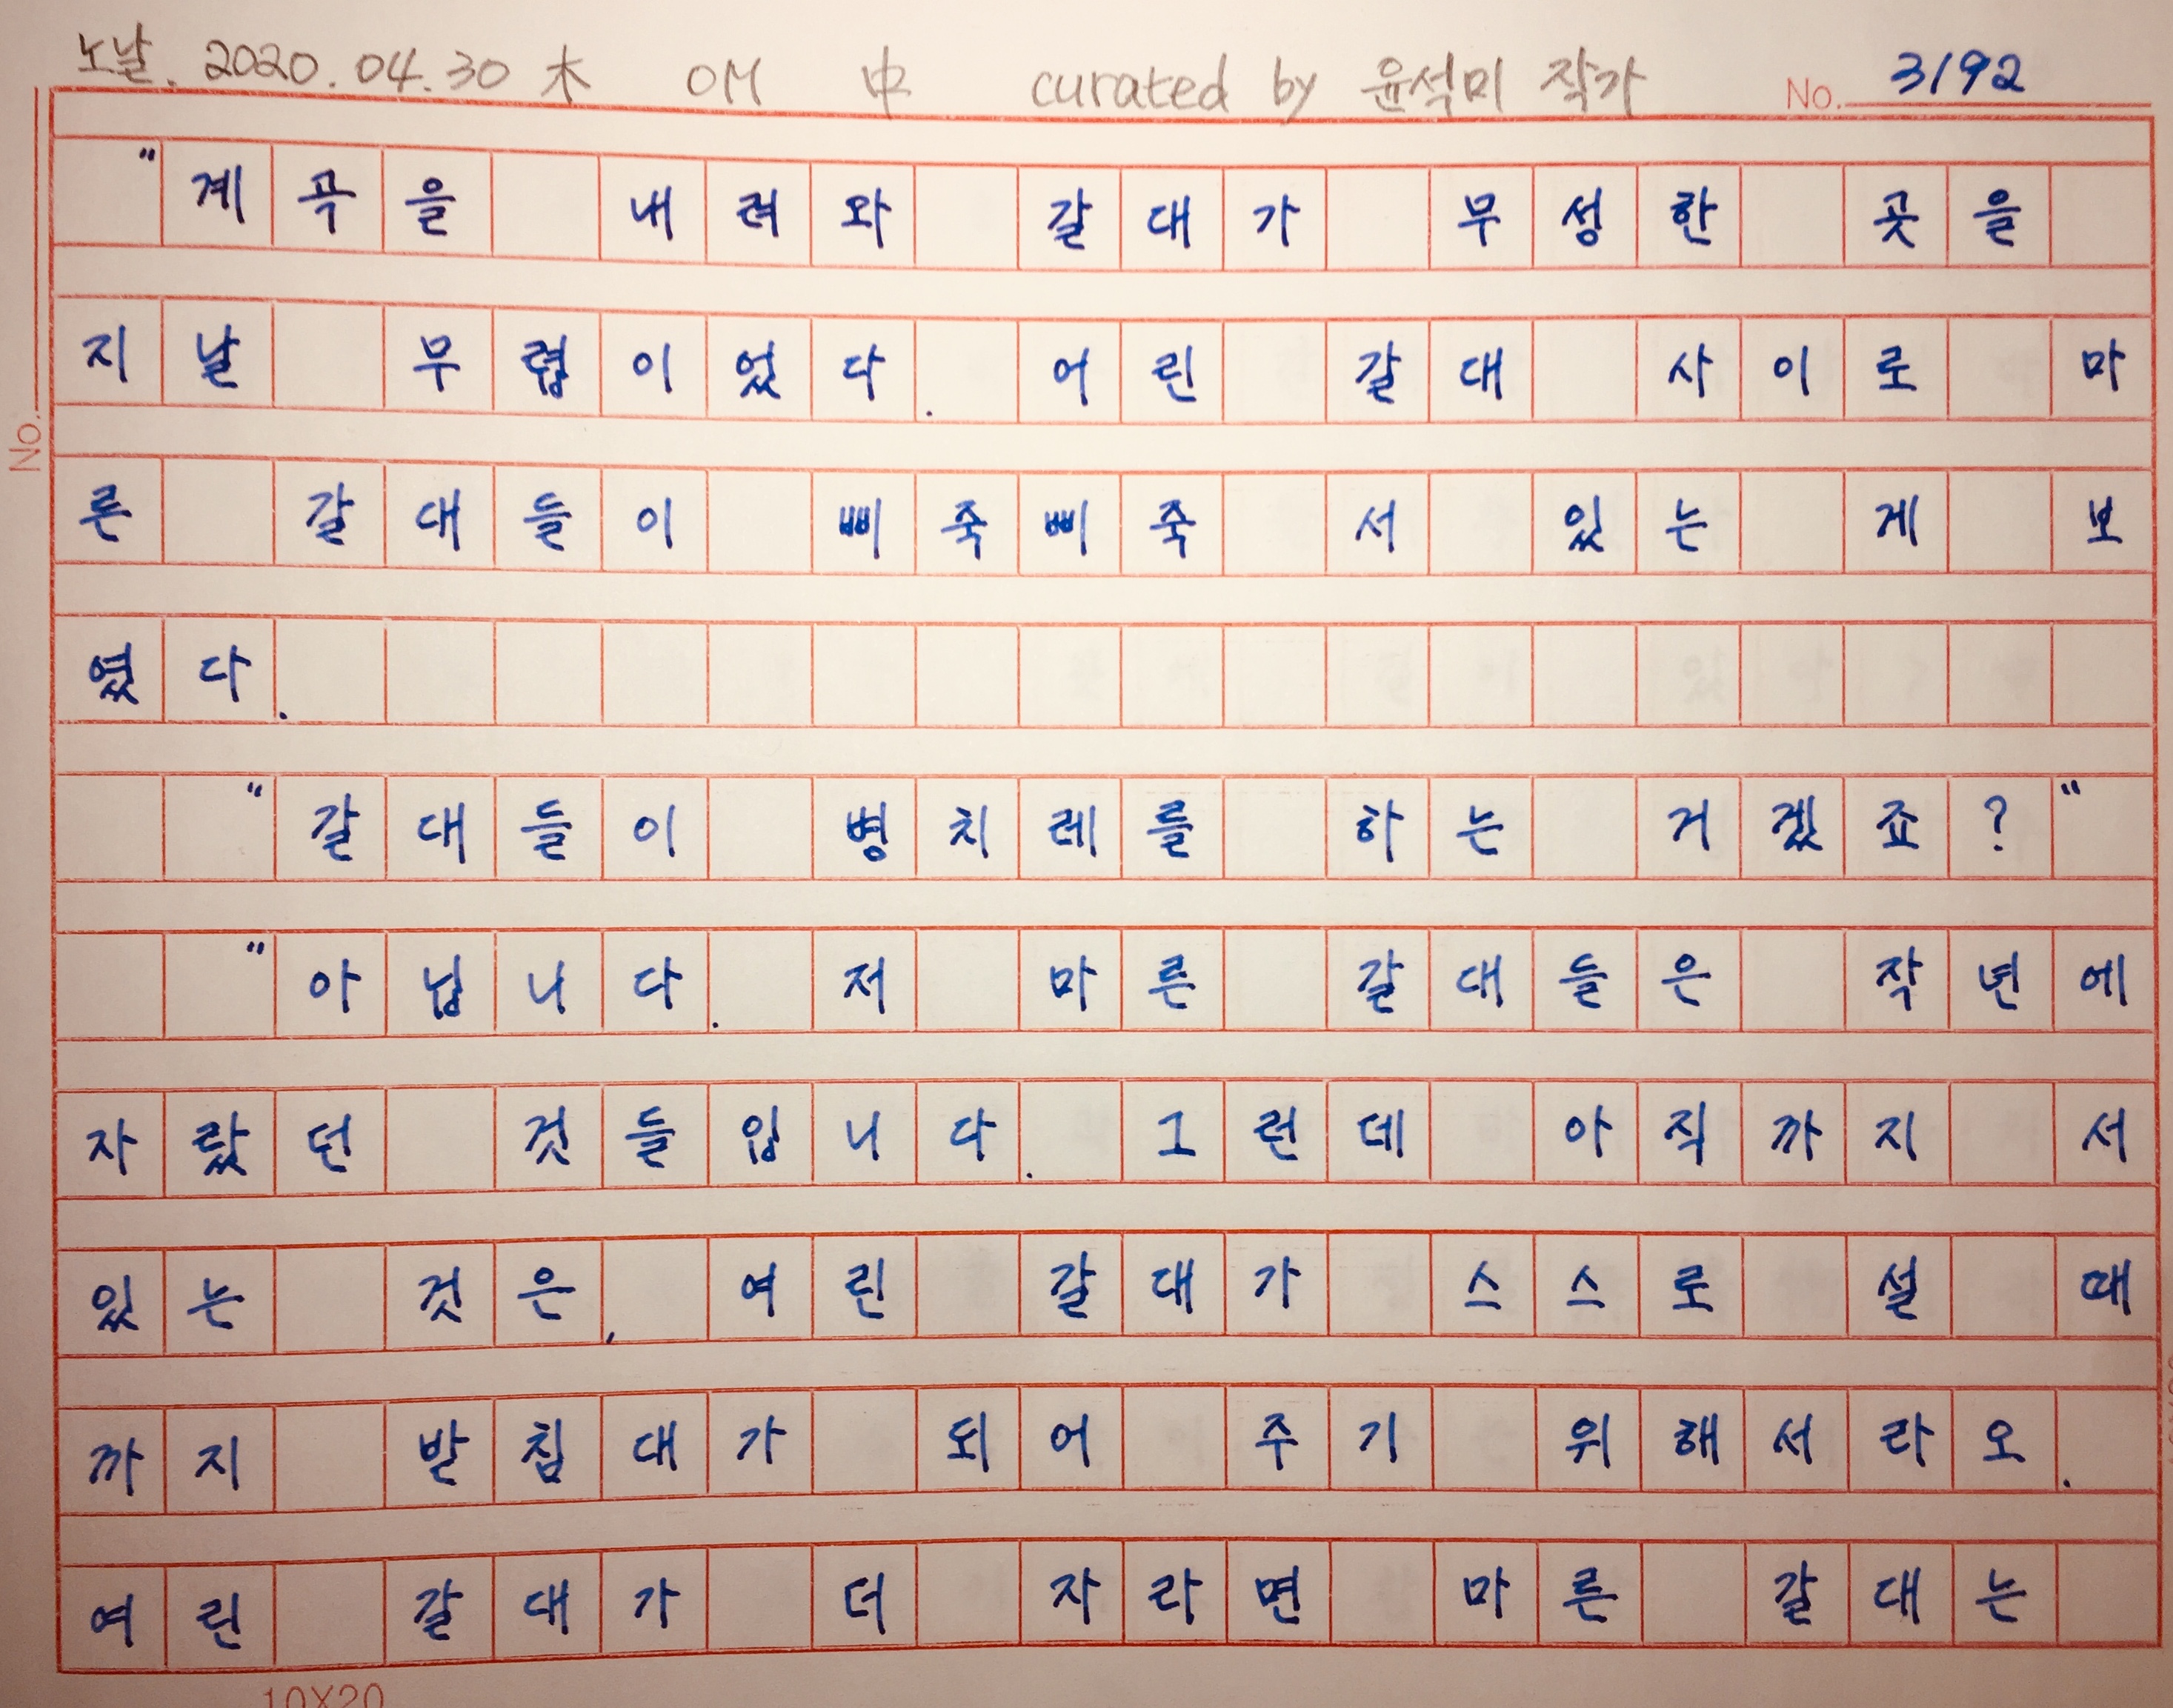 노날. 2020.04.30 木 OM 中 curated by 윤석미 작가 No. 3192
"계곡을 내려와 갈대가 무성한 곳을
지날 무렵이었다. 어린 갈대 사이로 마
른 갈대들이 삐죽삐죽 서 있는 게 보
였다.
"갈대들이 병치레를 하는 거겠죠?"
"아닙니다. 저 마른 갈대들은 작년에
자랐던 것들입니다. 그런데 아직까지 서
있는 것은, 여린 갈대가 스스로 설 때
까지 받침대가 되어 주기 위해서라오.
여린 갈대가 더 자라면 마른 갈대는
No.
10X20